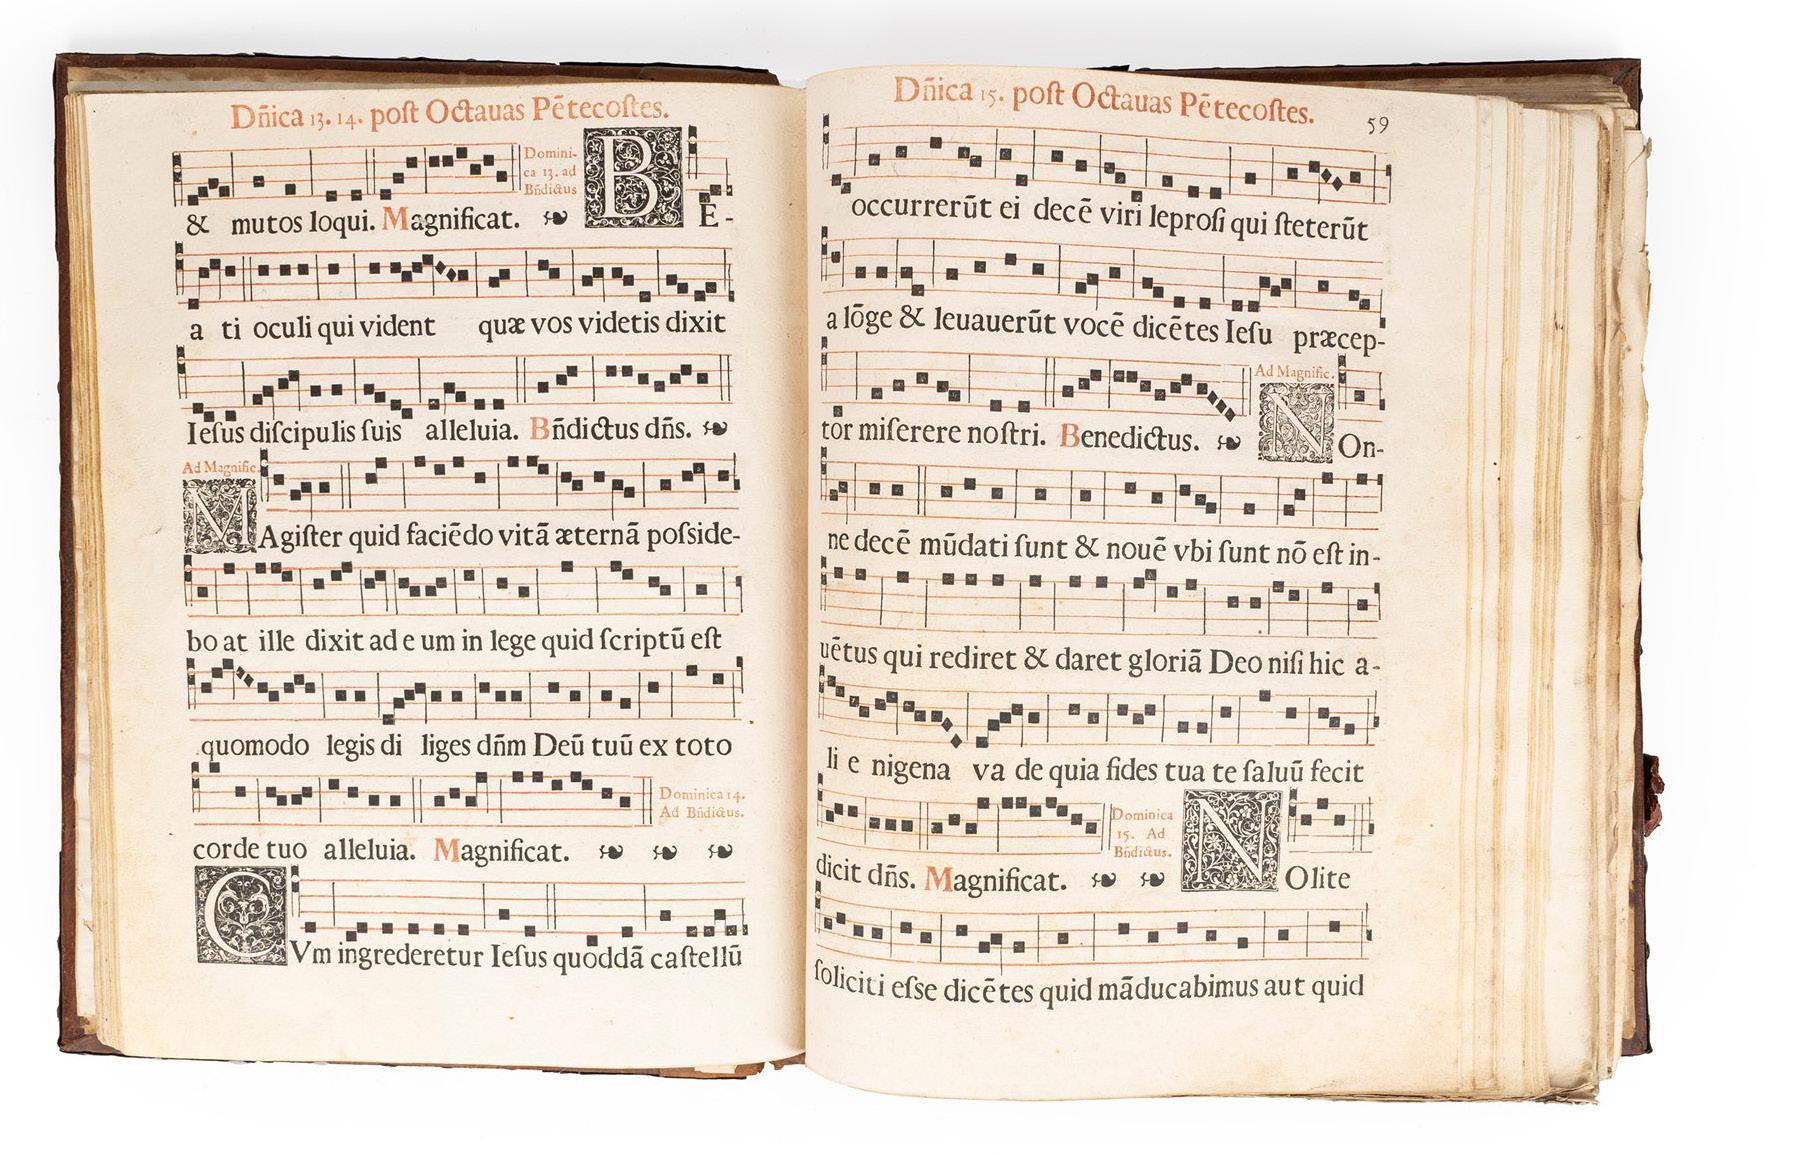 Dñica 13. 14. poſt Octauas Pẽtecoſtes.
Domini-
ca 13. ad
Bñdictus
B
& mutos loqui. Magnificat. E-
a ti oculi qui vident quæ vos videtis dixit
Ieſus diſcipulis ſuis alleluia. Bñdictus dñs.
Ad Magnific.
M
Agiſter quid faciẽdo vitã æternã poſside-
bo at ille dixit ad e um in lege quid ſcriptũ eſt
quomodo legis di liges dñm Deũ tuũ ex toto
Dominica 14.
Ad Bñdictus.
corde tuo alleluia. Magnificat.
C
Vm ingrederetur Ieſus quoddã caſtellũ
Dñica 15. poſt Octauas Pẽtecoſtes.
59
occurrerũt ei decẽ viri leproſi qui ſteterũt
a lõge & leuauerũt vocẽ dicẽtes Ieſu præcep-
Ad Magnific.
N
tor miſerere noſtri. Benedictus. On-
ne decẽ mũdati ſunt & nouẽ vbi ſunt nõ eſt in-
uẽtus qui rediret & daret gloriã Deo niſi hic a-
li e nigena va de quia fides tua te ſaluũ fecit
Dominica
15. Ad
Bñdictus.
N
dicit dñs. Magnificat. Olite
ſoliciti eſse dicẽtes quid mãducabimus aut quid